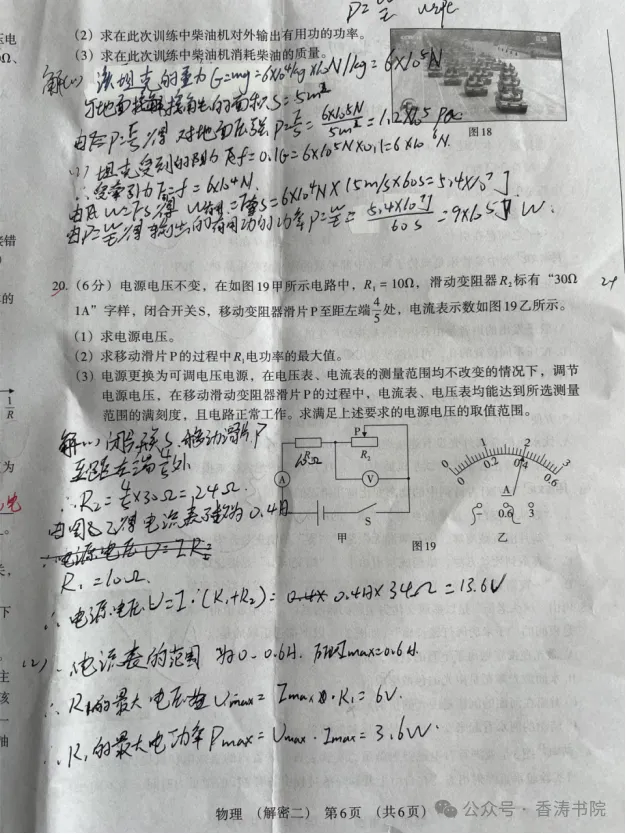 P=
(2) 求在此次训练中柴油机对外输出有用功的功率。
(3) 求在此次训练中柴油机消耗柴油的质量。
图18
解:(1) 坦克的重力G=mg=6×10⁴kg×10N/kg=6×10⁵N
与地面接触的面积S=5m²
得对地面压强P=F/S=6×10⁵N/5m²=1.2×10⁵Pa
(2) 坦克受到的阻力f=0.1G=6×10⁵N×0.1=6×10⁴N.
∴牵引力F=f=6×10⁴N.
由W=FS得W=FS=6×10⁴N×15m/s×60s=5.4×10⁷J
由P=W/t得输出的有用功的功率P=W/t=5.4×10⁷J/60s=9×10⁵W.
20. (6分) 电源电压不变,在如图19甲所示电路中,R₁=10Ω,滑动变阻器R₂标有“30Ω
24
1A”字样,闭合开关S,移动变阻器滑片P至距左端4/5处,电流表示数如图19乙所示。
(1) 求电源电压。
(2) 求移动滑片P的过程中R₁电功率的最大值。
(3) 电源更换为可调电压电源,在电压表、电流表的测量范围均不改变的情况下,调节
电源电压,在移动滑动变阻器滑片P的过程中,电流表、电压表均能达到所选测量
范围的满刻度,且电路正常工作。求满足上述要求的电源电压的取值范围。
解:(1) 闭合开关S,移动滑片P
至距左端4/5处
∴R₂=4/5×30Ω=24Ω.
由图乙得电流表示数为0.4A
∴电源电压U=IR
R₁=10Ω.
∴电源电压U=I·(R₁+R₂)=0.4× 0.4A×34Ω=13.6V
(2) ∵电流表的范围为0-0.6A. Imax=0.6A.
∴R₁的最大电压Umax=Imax·R₁=6V.
∴R₁的最大电功率Pmax=Umax·Imax=3.6W.
P
R₂
A
V
S
甲
图19
0 1 2 3
0 0.2 0.4 0.6
A
- 0.6 3
乙
1
R
物理 (解密二) 第6页 (共6页)
公众号·香涛书院